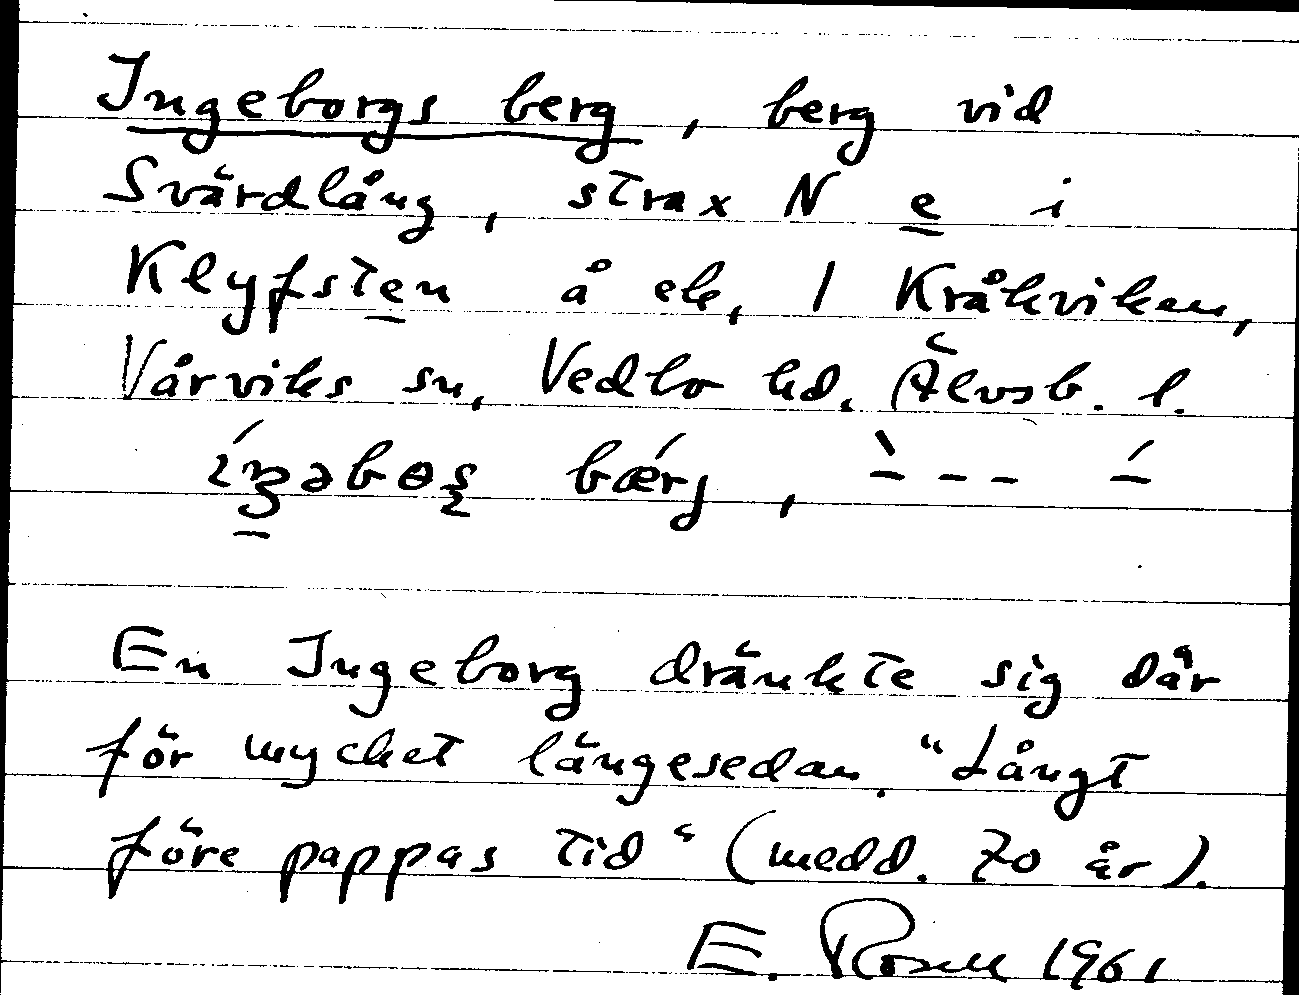 Ingeborgs berg, berg vid
Svärdlång, strax N e i
Klyfsten å ek, 1 Kråkviken,
Vårviks sn, Vedbo hd. Älvsb. l.
bærj, `- - - ´-
En Ingeborg dränkte sig där
för mycket längesedan. "Långt
före pappas tid" (medd. 70 år).
E. Rosell 1961